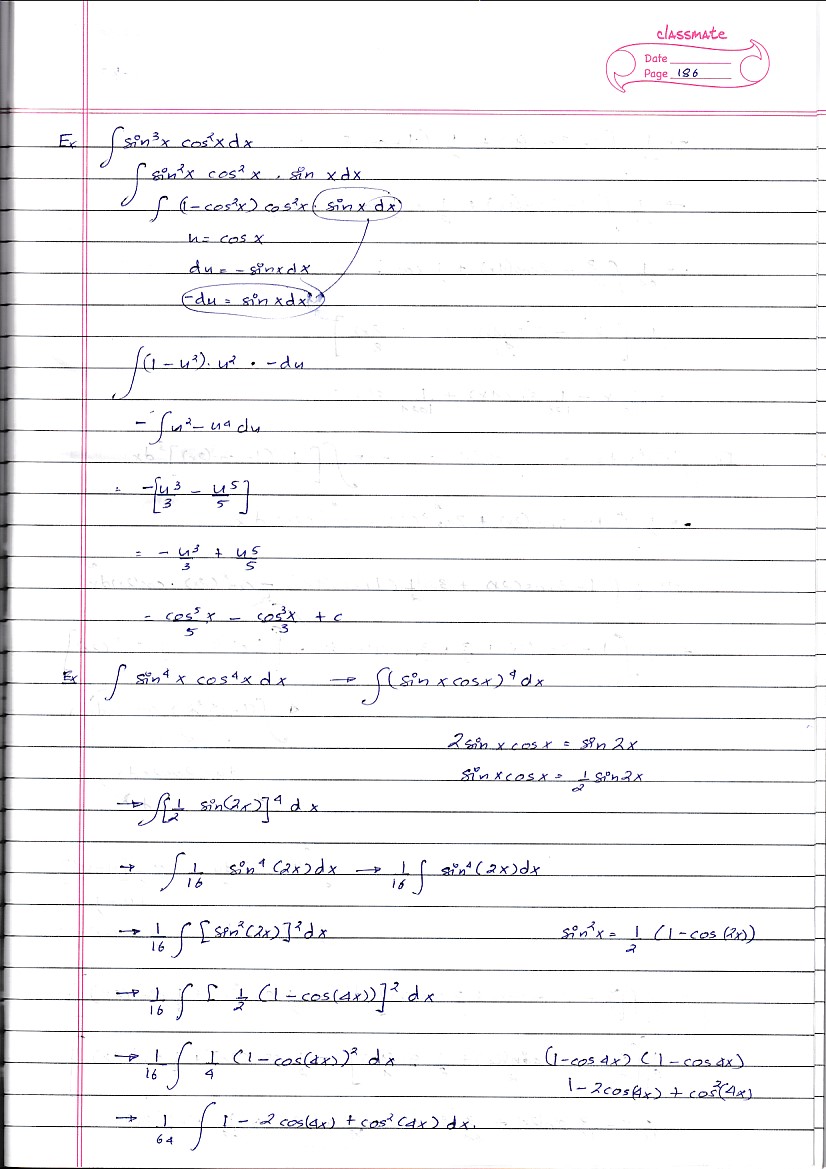 classmate
Date
Page 186
Ex ∫ sin³x cos²x dx
∫ sin²x cos²x . sin x dx
∫ (1-cos²x) cos²x · sin x dx
u = cos x
du = - sinx dx
-du = sin x dx
∫ (1-u²). u² · -du
- ∫ u² - u⁴ du
= -[u³/3 - u⁵/5]
= - u³/3 + u⁵/5
= cos⁵x/5 - cos³x/3 + c
Ex ∫ sin⁴x cos⁴x dx → ∫ (sin x cosx)⁴ dx
2 sin x cos x = sin 2x
sin x cos x = 1/2 sin 2x
→ ∫ [1/2 sin(2x)]⁴ dx
→ ∫ 1/16 sin⁴(2x) dx → 1/16 ∫ sin⁴(2x) dx
→ 1/16 ∫ [sin²(2x)]² dx sin²x = 1/2 (1-cos(2x))
→ 1/16 ∫ [1/2 (1-cos(4x))]² dx
→ 1/16 ∫ 1/4 (1-cos(4x))² dx (1-cos 4x) (1-cos 4x)
1-2cos(4x) + cos²(4x)
→ 1/64 ∫ 1 - 2 cos(4x) + cos²(4x) dx.